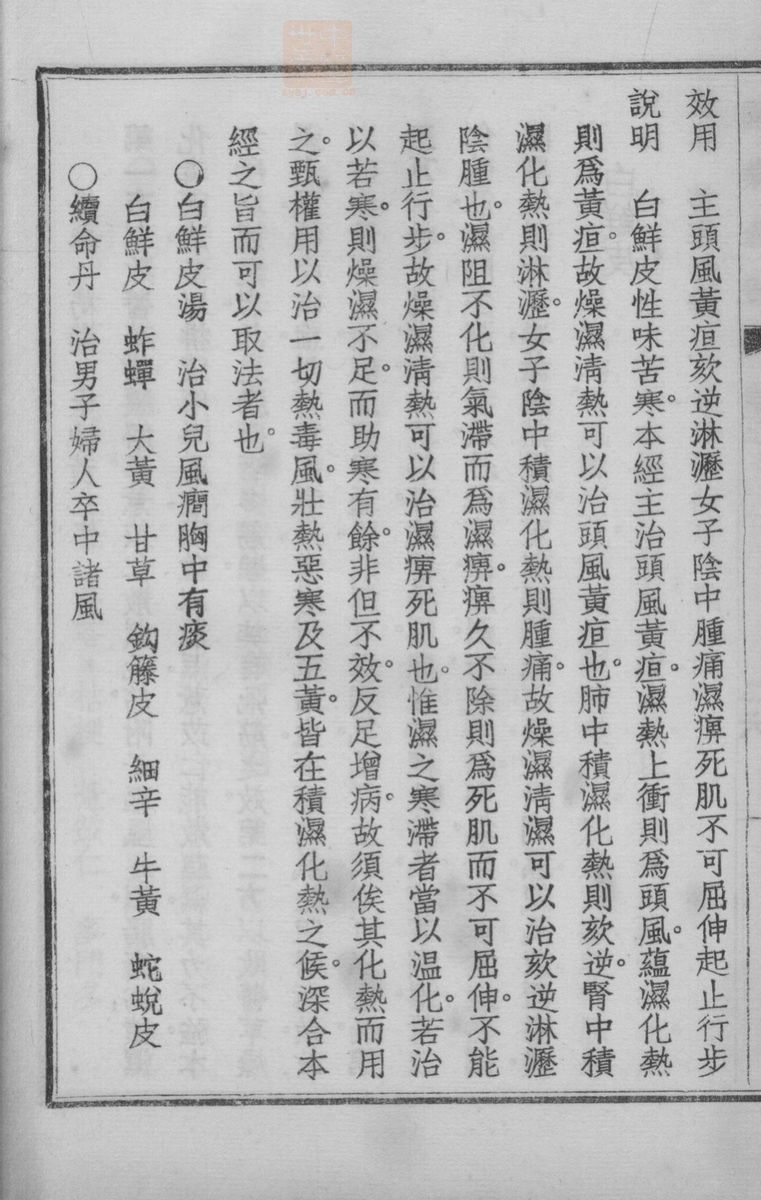 效用　主頭風黃疸欬逆淋瀝女子陰中腫痛濕痹死肌不可屈伸起止行步
說明　白鮮皮性味苦寒。本經主治頭風黃疸。濕熱上衝則爲頭風。蘊濕化熱
則爲黃疸。故燥濕淸熱可以治頭風黃疸也。肺中積濕化熱則欬逆。腎中積
濕化熱則淋瀝。女子陰中積濕化熱則腫痛。故燥濕淸濕可以治欬逆淋瀝
陰腫也。濕阻不化則氣滯而爲濕痹。痹久不除則爲死肌而不可屈伸。不能
起止行步。故燥濕淸熱可以治濕痹死肌也。惟濕之寒滯者當以温化。若治
以若寒。則燥濕不足。而助寒有餘。非但不效。反足增病。故須俟其化熱而用
之。甄權用以治一切熱毒風。壯熱惡寒及五黃。皆在積濕化熱之候。深合本
經之旨而可以取法者也。
○白鮮皮湯　治小兒風癎胸中有痰
白鮮皮　蚱蟬　大黃　甘草　鈎籐皮　細辛　牛黃　蛇蛻皮
○續命丹　治男子婦人卒中諸風